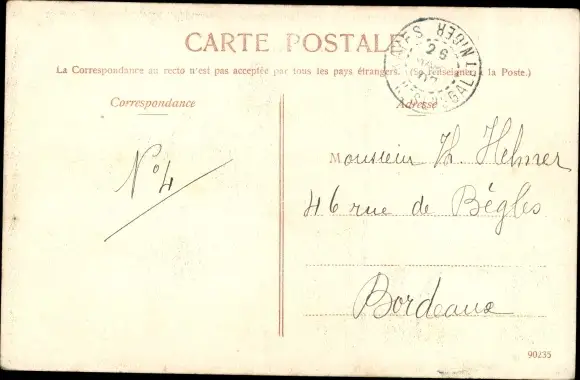 CARTE POSTALE
La Correspondance au recto n'est pas acceptée par tous les pays étrangers. (Se renseigner à la Poste.)
Correspondance
Adresse
KAYES
NIGER
26
SÉNÉGAL
N° 4
Monsieur Th. Helmer
46 rue de Bégles
Bordeaux
90235